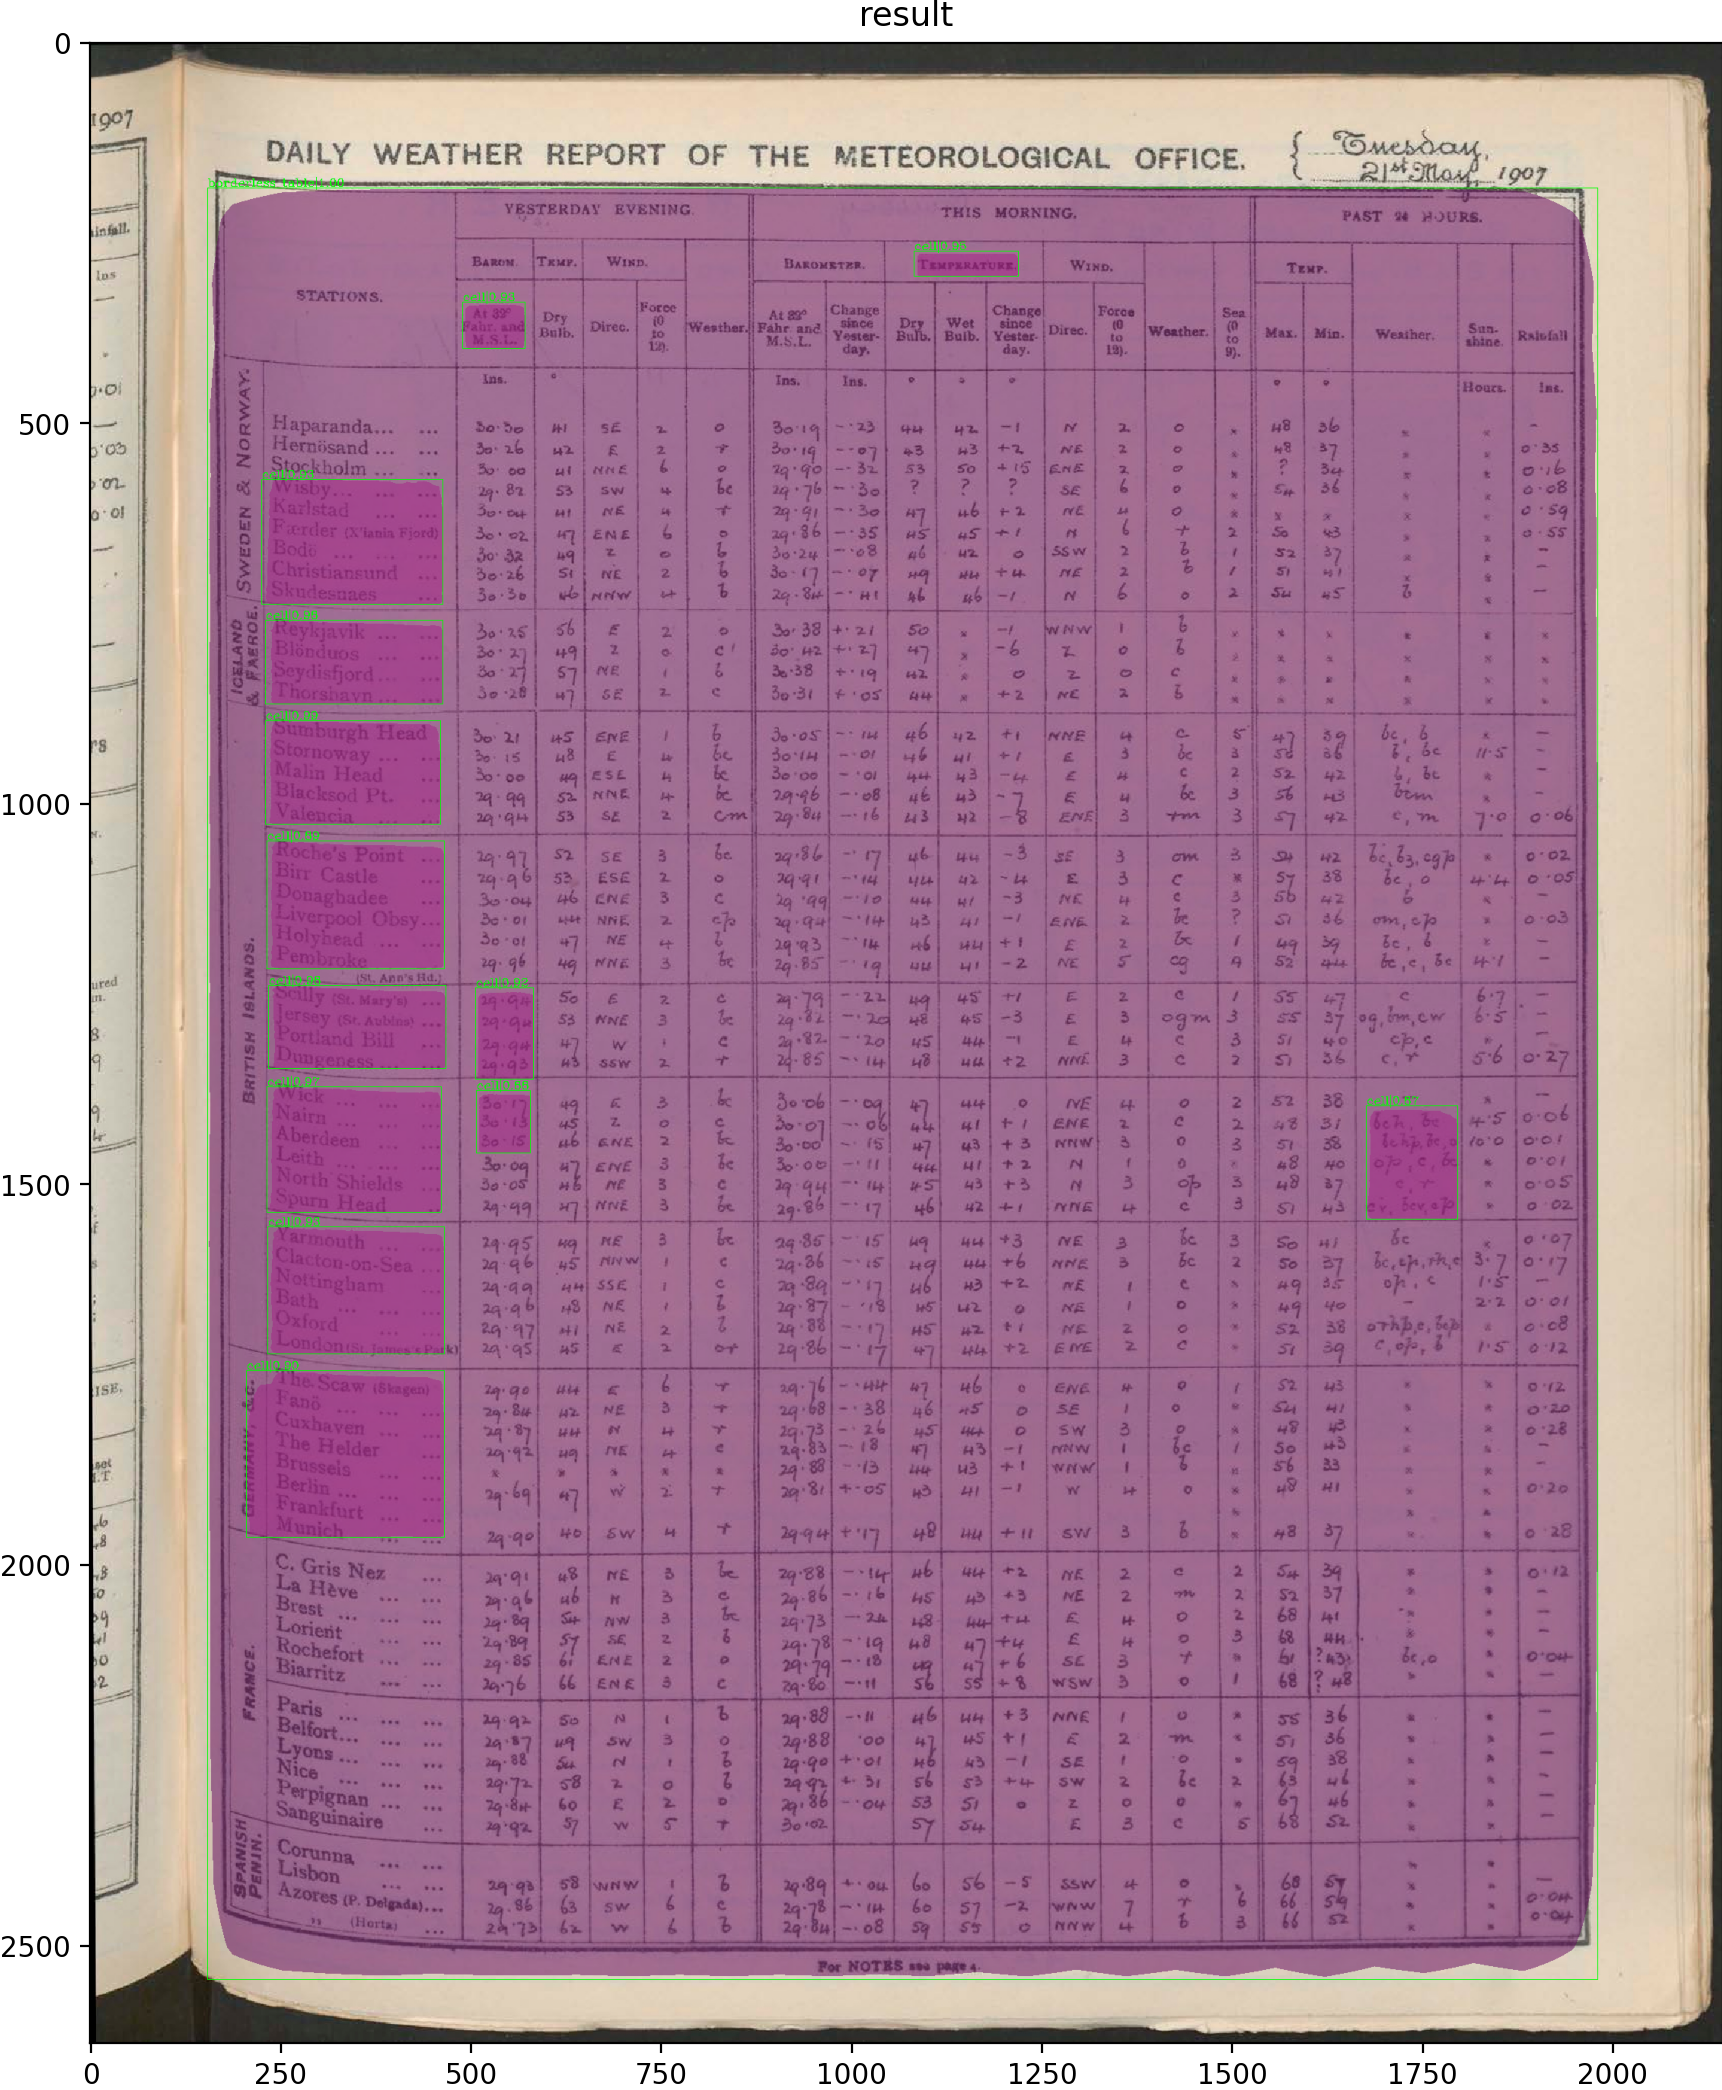 result
1907
DAILY WEATHER REPORT OF THE METEOROLOGICAL OFFICE. Tuesday, 21st May, 1907
YESTERDAY EVENING. THIS MORNING. PAST 24 HOURS.
BAROM. TEMP. WIND. BAROMETER. TEMPERATURE. WIND. TEMP.
STATIONS. At 32° Fahr. and M.S.L. Dry Bulb. Direc. Force (0 to 12). Weather. At 32° Fahr. and M.S.L. Change since Yester-day. Dry Bulb. Wet Bulb. Change since Yester-day. Direc. Force (0 to 12). Weather. Sea (0 to 9). Max. Min. Weather. Sun-shine. Rainfall
Ins. ° Ins. Ins. ° ° ° ° ° Hours. Ins.
SWEDEN & NORWAY.
Haparanda... ... 30.30 41 SE 2 o 30.19 -.23 44 42 -1 N 2 o * 48 36 * * -
Hernösand ... ... 30.26 42 E 2 r 30.19 -.07 43 43 +2 NE 2 o * 48 37 * * 0.35
Stockholm ... ... 30.00 41 NNE 6 o 29.90 -.32 53 50 +15 ENE 2 o * ? 34 * * 0.16
Wisby... ... ... 29.82 53 SW 4 bc 29.76 -.30 ? ? ? SE 6 o * 54 36 * * 0.08
Karlstad ... ... 30.04 41 NE 4 r 29.91 -.30 47 46 +2 NE 4 o * * * * * 0.59
Færder (X'iania Fjord) 30.02 47 ENE 6 o 29.86 -.35 45 45 +1 N 6 r 2 50 43 * * 0.55
Bodö ... ... ... 30.32 49 Z 0 b 30.24 -.08 46 42 0 SSW 2 b 1 52 37 * * -
Christiansund ... 30.26 51 NE 2 b 30.17 -.07 49 44 +4 NE 2 b 1 51 41 * * -
Skudesnaes ... 30.30 46 NNW 4 b 29.84 -.41 46 46 -1 N 6 o 2 54 45 b * -
ICELAND & FAEROE.
Reykjavik ... ... 30.25 56 E 2 o 30.38 +.21 50 * -1 WNW 1 b * * * * * *
Blönduos ... ... 30.27 49 Z 0 c 30.42 +.27 47 * -6 Z 0 b * * * * * *
Seydisfjord... ... 30.27 57 NE 1 b 30.38 +.19 42 * 0 Z 0 c * * * * * *
Thorshavn ... ... 30.28 47 SE 2 c 30.31 +.05 44 * +2 NE 2 b * * * * * *
BRITISH ISLANDS.
Sumburgh Head 30.21 45 ENE 1 b 30.05 -.14 46 42 +1 NNE 4 c 5 47 39 bc, b * -
Stornoway ... ... 30.15 48 E 4 bc 30.14 -.01 46 41 +1 E 3 bc 3 56 36 b, bc 11.5 -
Malin Head ... 30.00 49 ESE 4 bc 30.00 -.01 44 43 -4 E 4 c 2 52 42 b, bc * -
Blacksod Pt. ... 29.99 52 NNE 4 bc 29.96 -.08 46 43 -7 E 4 bc 3 56 43 bcm * -
Valencia ... ... 29.94 53 SE 2 cm 29.84 -.16 43 42 -8 ENE 3 rm 3 57 42 c, m 7.0 0.06
Roche's Point ... 29.97 52 SE 3 bc 29.86 -.17 46 44 -3 SE 3 om 3 54 42 * 0.02
Birr Castle ... 29.96 53 ESE 2 o 29.91 -.14 44 42 -4 E 3 c * 57 38 bc, o 4.4 0.05
Donaghadee ... 30.04 46 ENE 3 c 29.99 -.10 44 41 -3 NE 4 c 3 56 42 b * -
Liverpool Obsy... 30.01 44 NNE 2 c/p 29.94 -.14 43 41 -1 ENE 2 bc ? 51 36 om, c/p * 0.03
Holyhead ... ... 30.01 47 NE 4 b 29.93 -.14 46 44 +1 E 2 bc 1 49 39 bc, b * -
Pembroke (St. Ann's Hd.) 29.96 49 NNE 3 bc 29.85 -.19 44 41 -2 NE 5 cg 4 52 44 bc, c, bc 4.1 -
Scilly (St. Mary's) ... 29.94 50 E 2 c 29.79 -.22 49 45 +1 E 2 c 1 55 47 c 6.7 -
Jersey (St. Aubins) ... 29.94 53 NNE 3 bc 29.82 -.20 48 45 -3 E 3 ogm 3 55 37 og, bm, cw 6.5 -
Portland Bill ... 29.94 47 W 1 c 29.82 -.20 45 44 -1 E 4 c 3 51 40 c/p, c -
Dungeness... ... 29.93 43 SSW 2 r 29.85 -.14 48 44 +2 NNE 3 c 2 51 36 c, r 5.6 0.27
Wick ... ... ... 30.17 49 E 3 bc 30.06 -.09 47 44 0 NE 4 o 2 52 38 * -
Nairn ... ... ... 30.13 45 Z 0 c 30.07 -.06 44 41 +1 ENE 2 c 2 48 31 bch, bc 4.5 0.06
Aberdeen ... ... 30.15 46 ENE 2 bc 30.00 -.15 47 43 +3 NNW 3 o 3 51 38 10.0 0.01
Leith ... ... ... 30.09 47 ENE 3 bc 30.00 -.11 44 41 +2 N 1 o * 48 40 o/p, c, bc * 0.01
North Shields ... 30.05 46 NE 3 c 29.94 -.14 45 43 +3 N 3 op 3 48 37 c, r * 0.05
Spurn Head ... 29.99 47 NNE 3 bc 29.86 -.17 46 42 +1 NNE 4 c 3 51 43 * 0.02
Yarmouth ... ... 29.95 49 NE 3 bc 29.85 -.15 49 44 +3 NE 3 bc 3 50 41 bc * 0.07
Clacton-on-Sea ... 29.96 45 NNW 1 c 29.86 -.15 49 44 +6 NNE 3 bc 2 50 37 3.7 0.17
Nottingham ... 29.99 44 SSE 1 c 29.89 -.17 46 43 +2 NE 1 c * 49 35 op, c 1.5 -
Bath ... ... ... 29.96 48 NE 1 b 29.87 -.18 45 42 0 NE 1 o * 49 40 - 2.2 0.01
Oxford ... ... 29.97 41 NE 2 b 29.88 -.17 45 42 +1 NE 2 o * 52 38 * 0.08
London (St. James's Park) 29.95 45 E 2 or 29.86 -.17 47 44 +2 ENE 2 c * 51 39 c, o/p, b 1.5 0.12
GERMANY, &c.
The Scaw (Skagen) 29.90 44 E 6 r 29.76 -.44 47 46 0 ENE 4 o 1 52 43 * * 0.12
Fanö ... ... ... 29.84 42 NE 3 r 29.68 -.38 46 45 0 SE 1 o * 54 41 * * 0.20
Cuxhaven ... ... 29.87 44 N 4 r 29.73 -.26 45 44 0 SW 3 o * 48 43 * * 0.28
The Helder ... 29.92 49 NE 4 c 29.83 -.18 47 43 -1 NNW 1 bc 1 50 43 * * -
Brussels ... ... * * * * * 29.88 -.13 44 43 +1 WNW 1 b * 56 33 * * -
Berlin ... ... ... 29.69 47 W 2 r 29.81 +.05 43 41 -1 W 4 o * 48 41 * * 0.20
Frankfurt ... ... * * *
Munich ... ... 29.90 40 SW 4 r 29.94 +.17 48 44 +11 SW 3 b * 48 37 * * 0.28
FRANCE.
C. Gris Nez ... 29.91 48 NE 3 bc 29.88 -.14 46 44 +2 NE 2 c 2 54 39 * * 0.12
La Hève ... ... 29.96 46 N 3 c 29.86 -.16 45 43 +3 NE 2 m 2 52 37 * * -
Brest ... ... ... 29.89 54 NW 3 bc 29.73 -.24 48 44 +4 E 4 o 2 68 41 * * -
Lorient ... ... 29.89 57 SE 2 b 29.78 -.19 48 47 +4 E 4 o 3 68 44 * * -
Rochefort ... ... 29.85 61 ENE 2 o 29.79 -.18 49 47 +6 SE 3 r * 61 ?43 bc, o * 0.04
Biarritz ... ... 29.76 66 ENE 3 c 29.80 -.11 56 55 +8 WSW 3 o 1 68 ?48 * * -
Paris ... ... ... 29.92 50 N 1 b 29.88 -.11 46 44 +3 NNE 1 o * 55 36 * * -
Belfort... ... ... 29.87 49 SW 3 o 29.88 .00 47 45 +1 E 2 m * 51 36 * * -
Lyons ... ... ... 29.88 54 N 1 b 29.90 +.01 46 43 -1 SE 1 o * 59 38 * * -
Nice ... ... ... 29.72 58 Z 0 b 29.92 +.31 56 53 +4 SW 2 bc 2 63 46 * * -
Perpignan ... ... 29.84 60 E 2 o 29.86 -.04 53 51 0 Z 0 o * 67 46 * * -
Sanguinaire ... 29.92 57 W 5 r 30.02 57 54 E 3 c 5 68 52 * * -
SPANISH PENIN.
Corunna ... ... * *
Lisbon ... ... 29.93 58 WNW 1 b 29.89 +.04 60 56 -5 SSW 4 o * 68 57 * * -
Azores (P. Delgada)... 29.86 63 SW 6 c 29.78 -.14 60 57 -2 WNW 7 r 6 66 59 * * 0.04
" (Horta) ... 29.73 62 W 6 b 29.84 -.08 59 55 0 NNW 4 b 3 66 52 * * 0.04
For NOTES see page 4.
0 250 500 750 1000 1250 1500 1750 2000
0
500
1000
1500
2000
2500